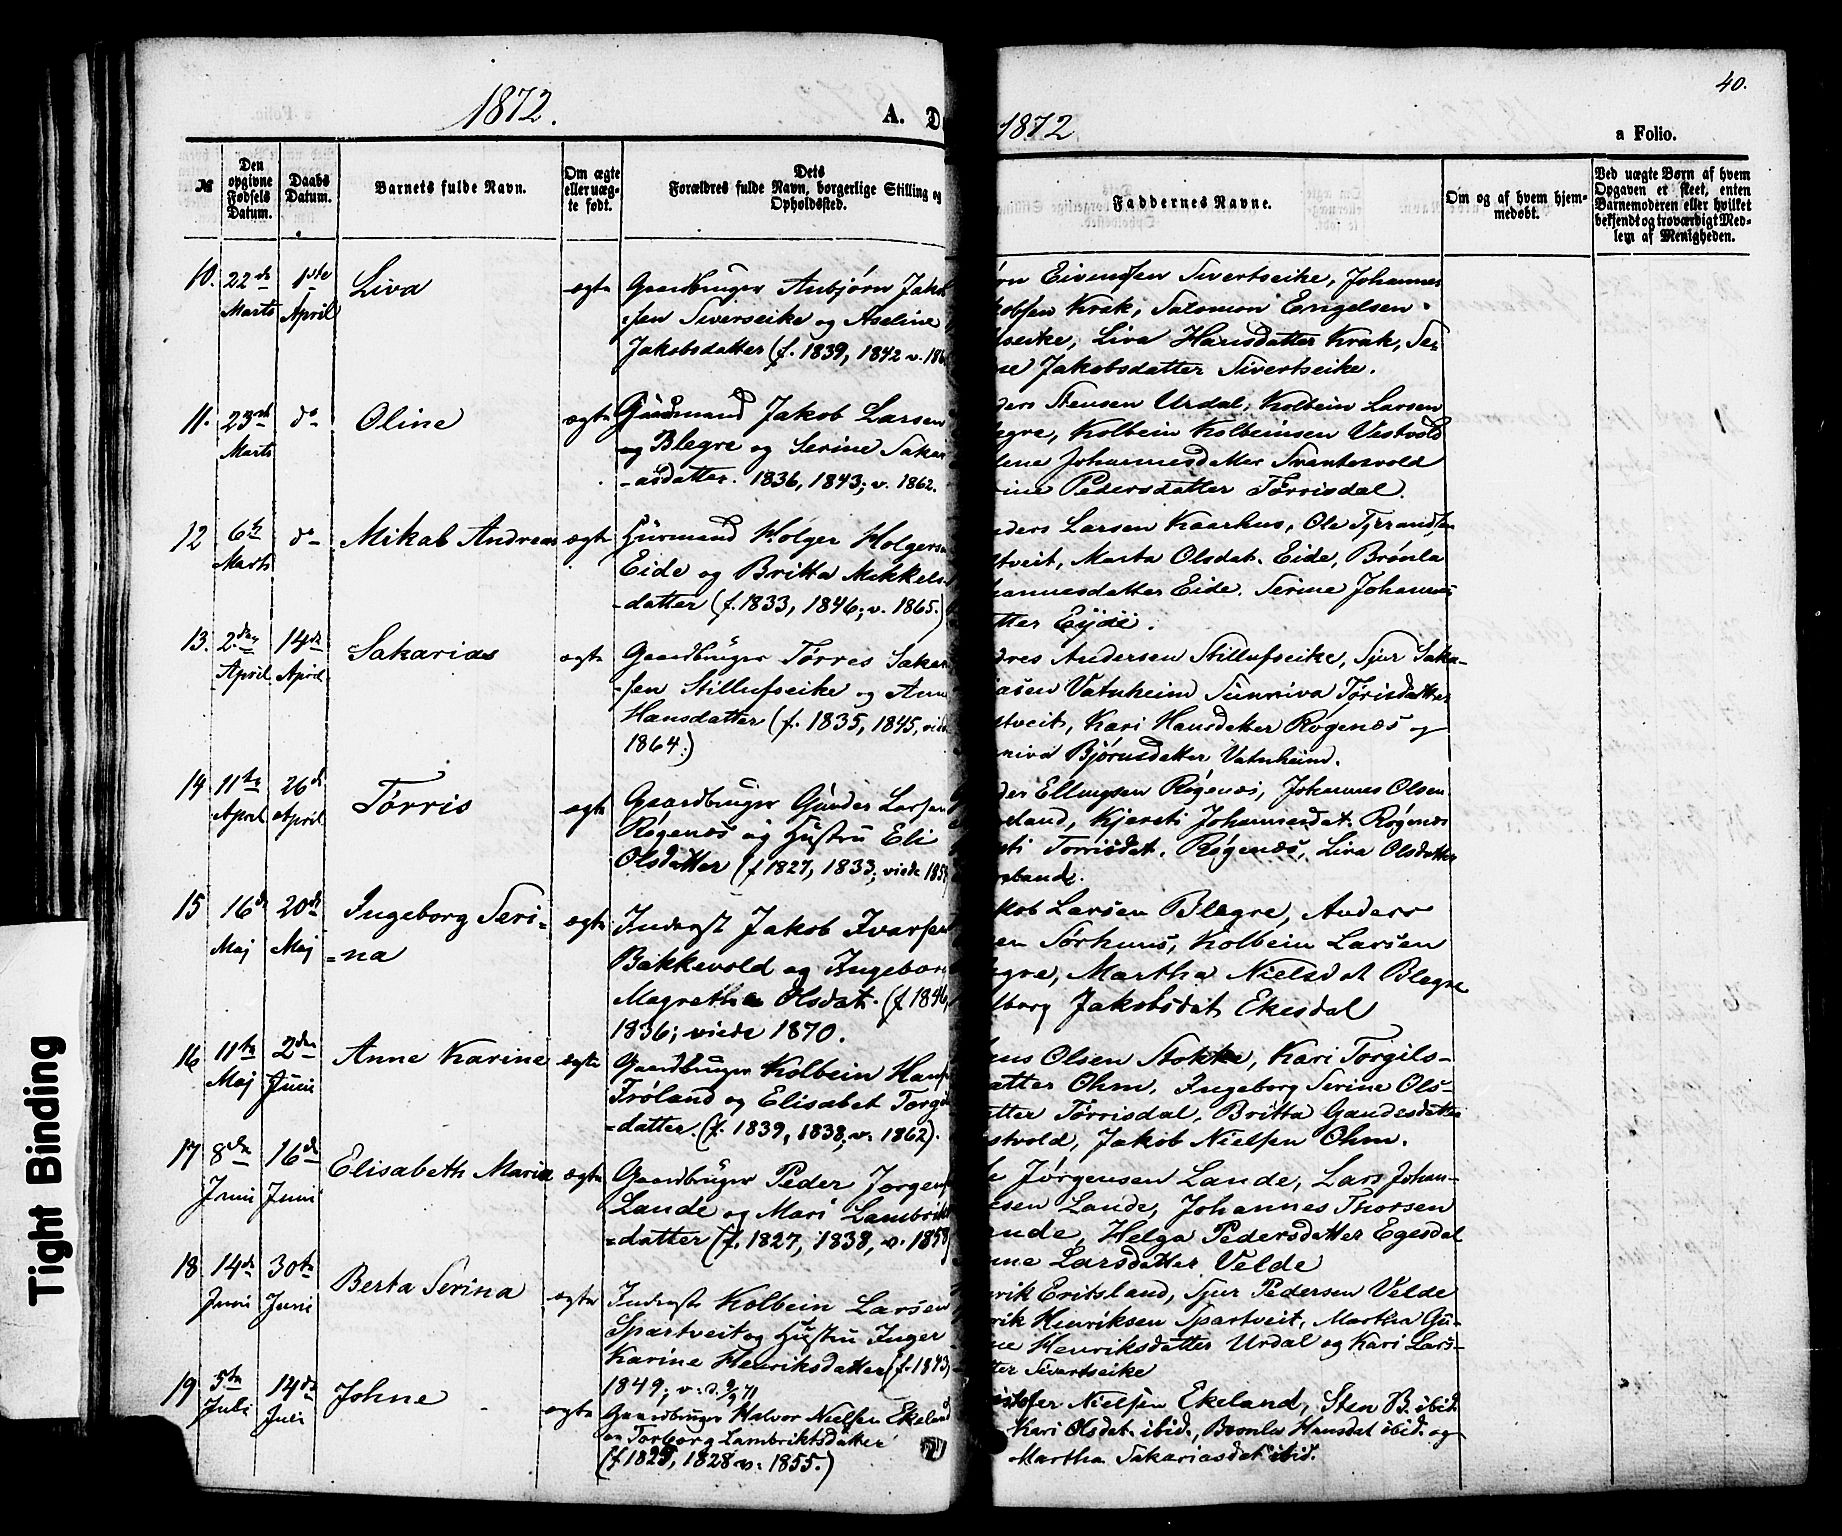 40.
1872.
A. D
1872
a Folio.
№
Den opgivne Fødsels Datum.
Daabs Datum.
Barnets fulde Navn.
Om ægte eller uægte født.
Dets Forældres fulde Navn, borgerlige Stilling og Opholdssted.
Faddernes Navne.
Om og af hvem hjemmedøbt.
Ved uægte Børn af hvem Opgaven er skeet, enten Barnemoderen eller hvilket bekjendt og troværdigt Medlem af Menigheden.
10. 22de Marts 1ste April Liva ægte
Gaardbruger Anbjørn Jakob
-sen Siverseike og Aseline
Jakobsdatter (f. 1839, 1842 v. 186
Eivensen Sivertseike, Johannes
obsen Krak, Salomon Engelsen
seike, Liva Hansdatter Krak, Se-
ne Jakobsdatter Sivertseike.
11. 23de Marts do Oline ægte
Gaardmand Jakob Larsen
Blegre og Serine Sakari
-asdatter. 1836, 1843; v. 1862.
ders Stensen Urdal, Kolbein Larsen
egre, Kolbein Kolbeinsen Vestvold
lene Johannesdatter Svantesvold
rine Pedersdatter Tørrisdal.
12 6te Marts do Mikal Andreas ægte
Huusmand Holger Holgers
Eide og Britta Mikkels
-datter (f. 1833, 1846; v. 1865.)
nders Larsen Kaarhus, Ole Tjerrandsen
tveit, Marta Olsdat. Eide, Brønla
hannesdatter Eide. Serine Johannes
tter Eyde.
13. 2den April 14de April Sakarias ægte
Gaardbruger Tørres Sakari
-sen Stillufseike og Anne
Hansdatter (f. 1835, 1845, viede
1864.)
dres Andersen Stillufseike, Sjur Saka-
iasen Vatnheim Sunniva Tørisdatter
tveit, Kari Hansdatter Røgenæs og
niva Bjørnsdatter Vatnheim.
14 11te April 26de April Tørris ægte
Gaardbruger Gunder Larsen
Røgenæs og Hustru Eli
Olsdatter (f 1827, 1833; viede 185
der Ellingsen Røgenæs, Johannes Olsen
eland, Kjersti Johannesdat. Røgenæs
ti Torrisdat. Røgenæs, Liva Olsdatter
eland.
15 16de Maj 20de Maj Ingeborg Seri-
=na ægte
Inderst Jakob Ivarsen
Bakkevold og Ingeborg
Magrethe Olsdat. (f. 1846,
1836; viede 1870.
kob Larsen Blegre, Anders
en Sørhuus, Kolbein Larsen
egre, Martha Nielsdat Blegre
lborg Jakobsdat Ekesdal
16 11te Maj 2den Juni Anne Karine ægte
Gaardbruger Kolbein Hans
Frøland og Elisabet Torgils
=datter. (f. 1839, 1838; v. 1862).
us Olsen Stokke, Kari Torgils-
atter Ohm, Ingeborg Serine Ols-
atter Tørrisdal, Britta Gaudesdatter
stvold, Jakob Nielsen Ohm.
17 8de Juni 16de Juni Elisabeth Maria ægte
Gaardbruger Peder Jørgens
Lande og Mari Lambrikts
=datter (f. 1827, 1838, v. 1858
e Jørgensen Lande, Lars Johan-
esen Lande, Johannes Thorsen
nde, Helga Pedersdatter Egesdal
ne Larsdatter Velde
18 14de Juni 30te Juni Berta Serina ægte
Inderst Kolbein Larsen
Spartveit og Hustru Inger
Karine Henriksdatter (f. 1843,
1849; v. d. 9/9 71
rik Eritsland, Sjur Pedersen Velde
rik Henriksen Spartveit, Martha Gu-
ne Henriksdatter Urdal og Kari Lars-
tter Sivertseike
19 5te Juli 14de Juli Johne ægte
Gaardbruger Halvor Nielsen Ekeland
og Torborg Lambriktsdatter
(f 1825, 1828 v. 1855.)
stofer Nielsen Ekeland, Sten B. ibid.
Kari Olsdat. ibid., Brønla Hansdat ibid. og
Martha Sakariasdat ibid.
Tight Binding